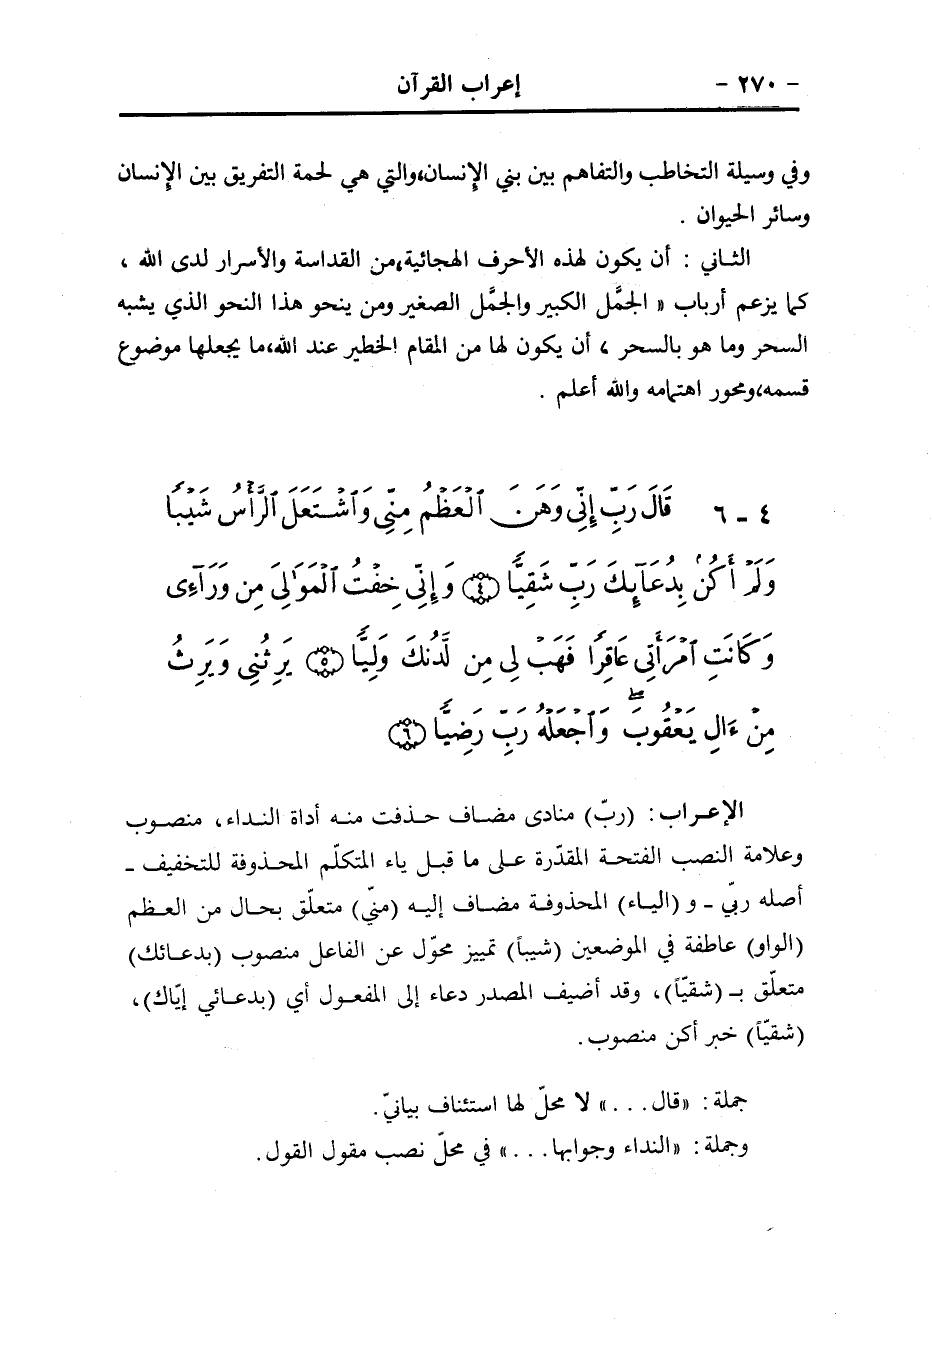 - ٢٧٠ - إعراب القرآن
وفي وسيلة التخاطب والتفاهم بين بني الإنسان،والتي هي لحمة التفريق بين الإنسان
وسائر الحيوان .
الثاني : أن يكون لهذه الأحرف الهجائية،من القداسة والأسرار لدى الله ،
كما يزعم أرباب « الجمَّل الكبير والجمَّل الصغير ومن ينحو هذا النحو الذي يشبه
السحر وما هو بالسحر ، أن يكون لها من المقام الخطير عند الله،ما يجعلها موضوع
قسمه،ومحور اهتمامه والله أعلم .
٤ - ٦ قَالَ رَبِّ إِنِّي وَهَنَ ٱلْعَظْمُ مِنِّي وَٱشْتَعَلَ ٱلرَّأْسُ شَيْبًا
وَلَمْ أَكُنۢ بِدُعَآئِكَ رَبِّ شَقِيًّا ﴿٤﴾ وَإِنِّي خِفْتُ ٱلْمَوَٰلِيَ مِن وَرَآءِي
وَكَانَتِ ٱمْرَأَتِي عَاقِرًا فَهَبْ لِي مِن لَّدُنكَ وَلِيًّا ﴿٥﴾ يَرِثُنِي وَيَرِثُ
مِنْ ءَالِ يَعْقُوبَ ۖ وَٱجْعَلْهُ رَبِّ رَضِيًّا ﴿٦﴾
الإعراب: (ربّ) منادى مضاف حذفت منه أداة النداء، منصوب
وعلامة النصب الفتحة المقدّرة على ما قبل ياء المتكلّم المحذوفة للتخفيف ـ
أصله ربّي ـ و (الياء) المحذوفة مضاف إليه (منّي) متعلّق بحال من العظم
(الواو) عاطفة في الموضعين (شيباً) تمييز محوّل عن الفاعل منصوب (بدعائك)
متعلّق بـ (شقيّاً)، وقد أضيف المصدر دعاء إلى المفعول أي (بدعائي إيّاك)،
(شقيّاً) خبر أكن منصوب.
جملة: «قال...» لا محلّ لها استئناف بيانيّ.
وجملة: «النداء وجوابها...» في محلّ نصب مقول القول.